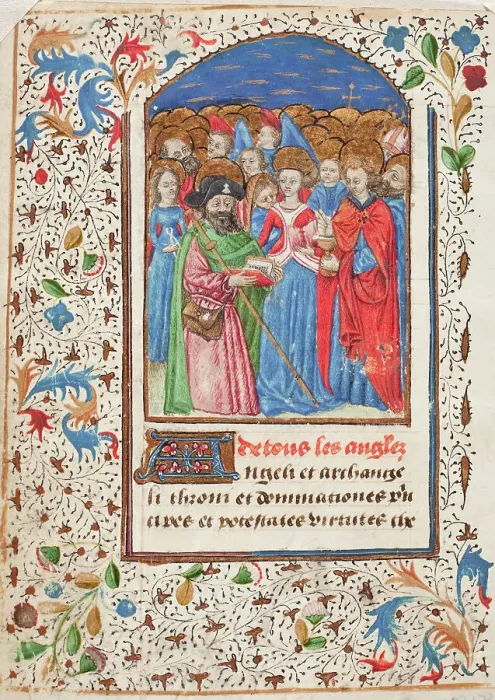 de tous les angles
Angeli et archange
li throni et dominationes pri
cipes et potestates virtutes